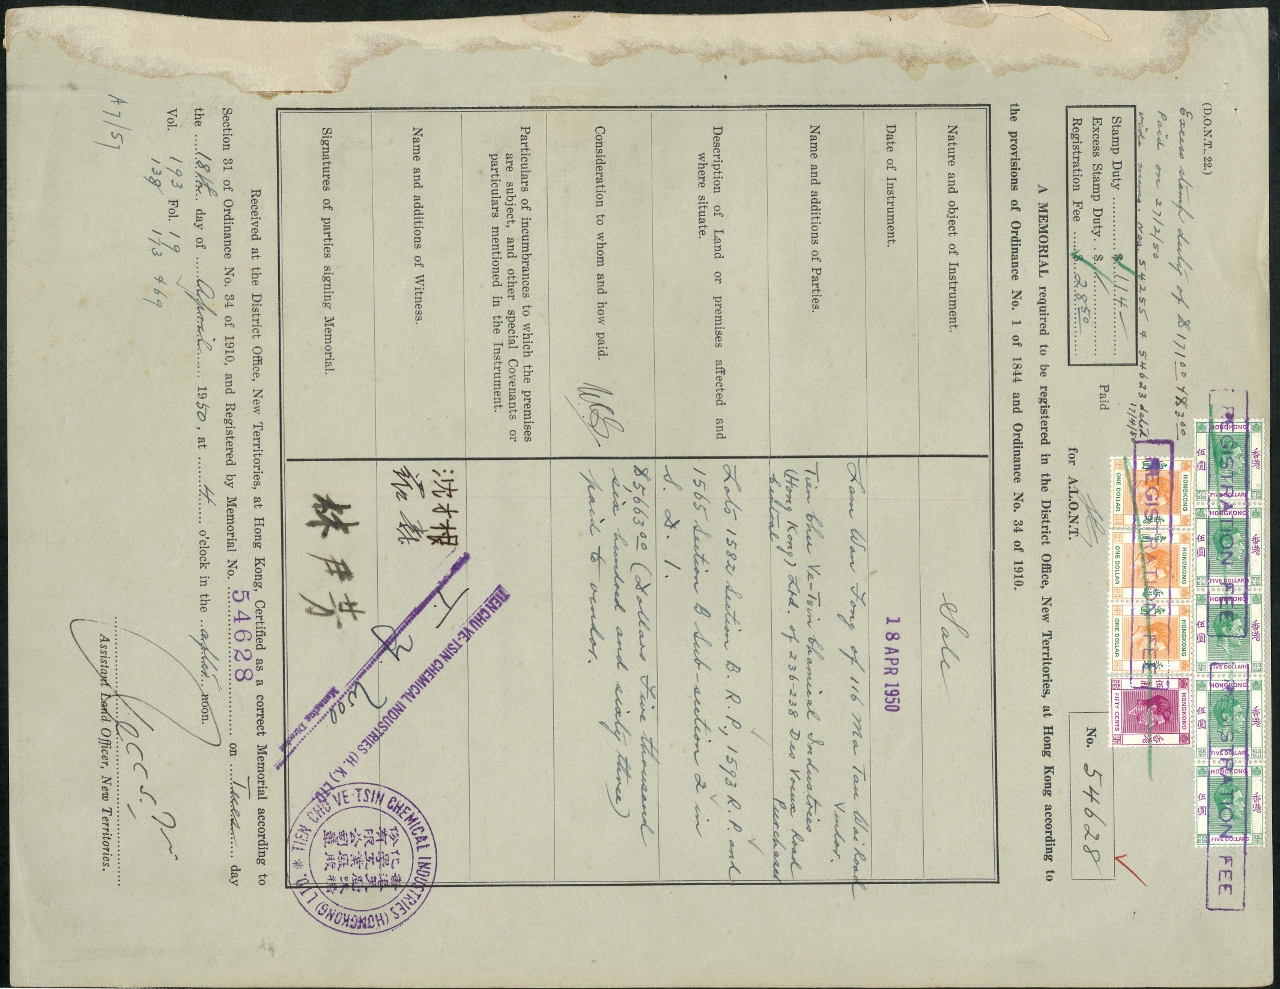 (D.O.N.T. 22.)
Excess stamp duty of $171.00 & $3.00
Paid on 27/2/50
vide memo. Nos. 54255 & 54623 dated
17/4/50
Stamp Duty ............ $ 114 —
Excess Stamp Duty .. $
Registration Fee ...... $ 28.50
Paid
for A.L.O.N.T.
No. 54628
REGISTRATION FEE
REGISTRATION FEE
REGISTRATION FEE
HONGKONG
香港
伍圓
FIVE DOLLARS
HONGKONG
ONE DOLLAR
HONGKONG
FIFTY CENTS
A MEMORIAL required to be registered in the District Office, New Territories, at Hong Kong according to
the provisions of Ordinance No. 1 of 1844 and Ordinance No. 34 of 1910.
Nature and object of Instrument.
Sale
Date of Instrument.
18 APR 1950
Names and additions of Parties.
Lam Wan Fong of 116 Ma Tau Wai Road
Vendor.
Tien Chu Ve-Tsin Chemical Industries
(Hong Kong) Ltd. of 236-238 Des Voeux Road
Central Purchaser
Description of Land or premises affected and
where situate.
Lots 1582 Section B. R.P., 1593 R.P. and
1565 Section B Sub-section 2 in
S. D. 1.
Consideration to whom and how paid.
$5663.00 (Dollars Five thousand
six hundred and sixty three)
paid to vendor.
Particulars of incumbrances to which the premises
are subject, and other special Covenants or
particulars mentioned in the Instrument.
Name and additions of Witness.
Signatures of parties signing Memorial.
TIEN CHU VE-TSIN CHEMICAL INDUSTRIES (H. K.) LTD.
Managing Director
TIEN CHU VE-TSIN CHEMICAL INDUSTRIES (HONGKONG) LTD.
Received at the District Office, New Territories, at Hong Kong, Certified as a correct Memorial according to
Section 31 of Ordinance No. 34 of 1910, and Registered by Memorial No. 54628 on Tues day
the 18th day of April 1950, at 4 o'clock in the after noon.
Vol. 193 Fol. 19
138 173 & 69
Assistant Land Officer, New Territories.
A7/57